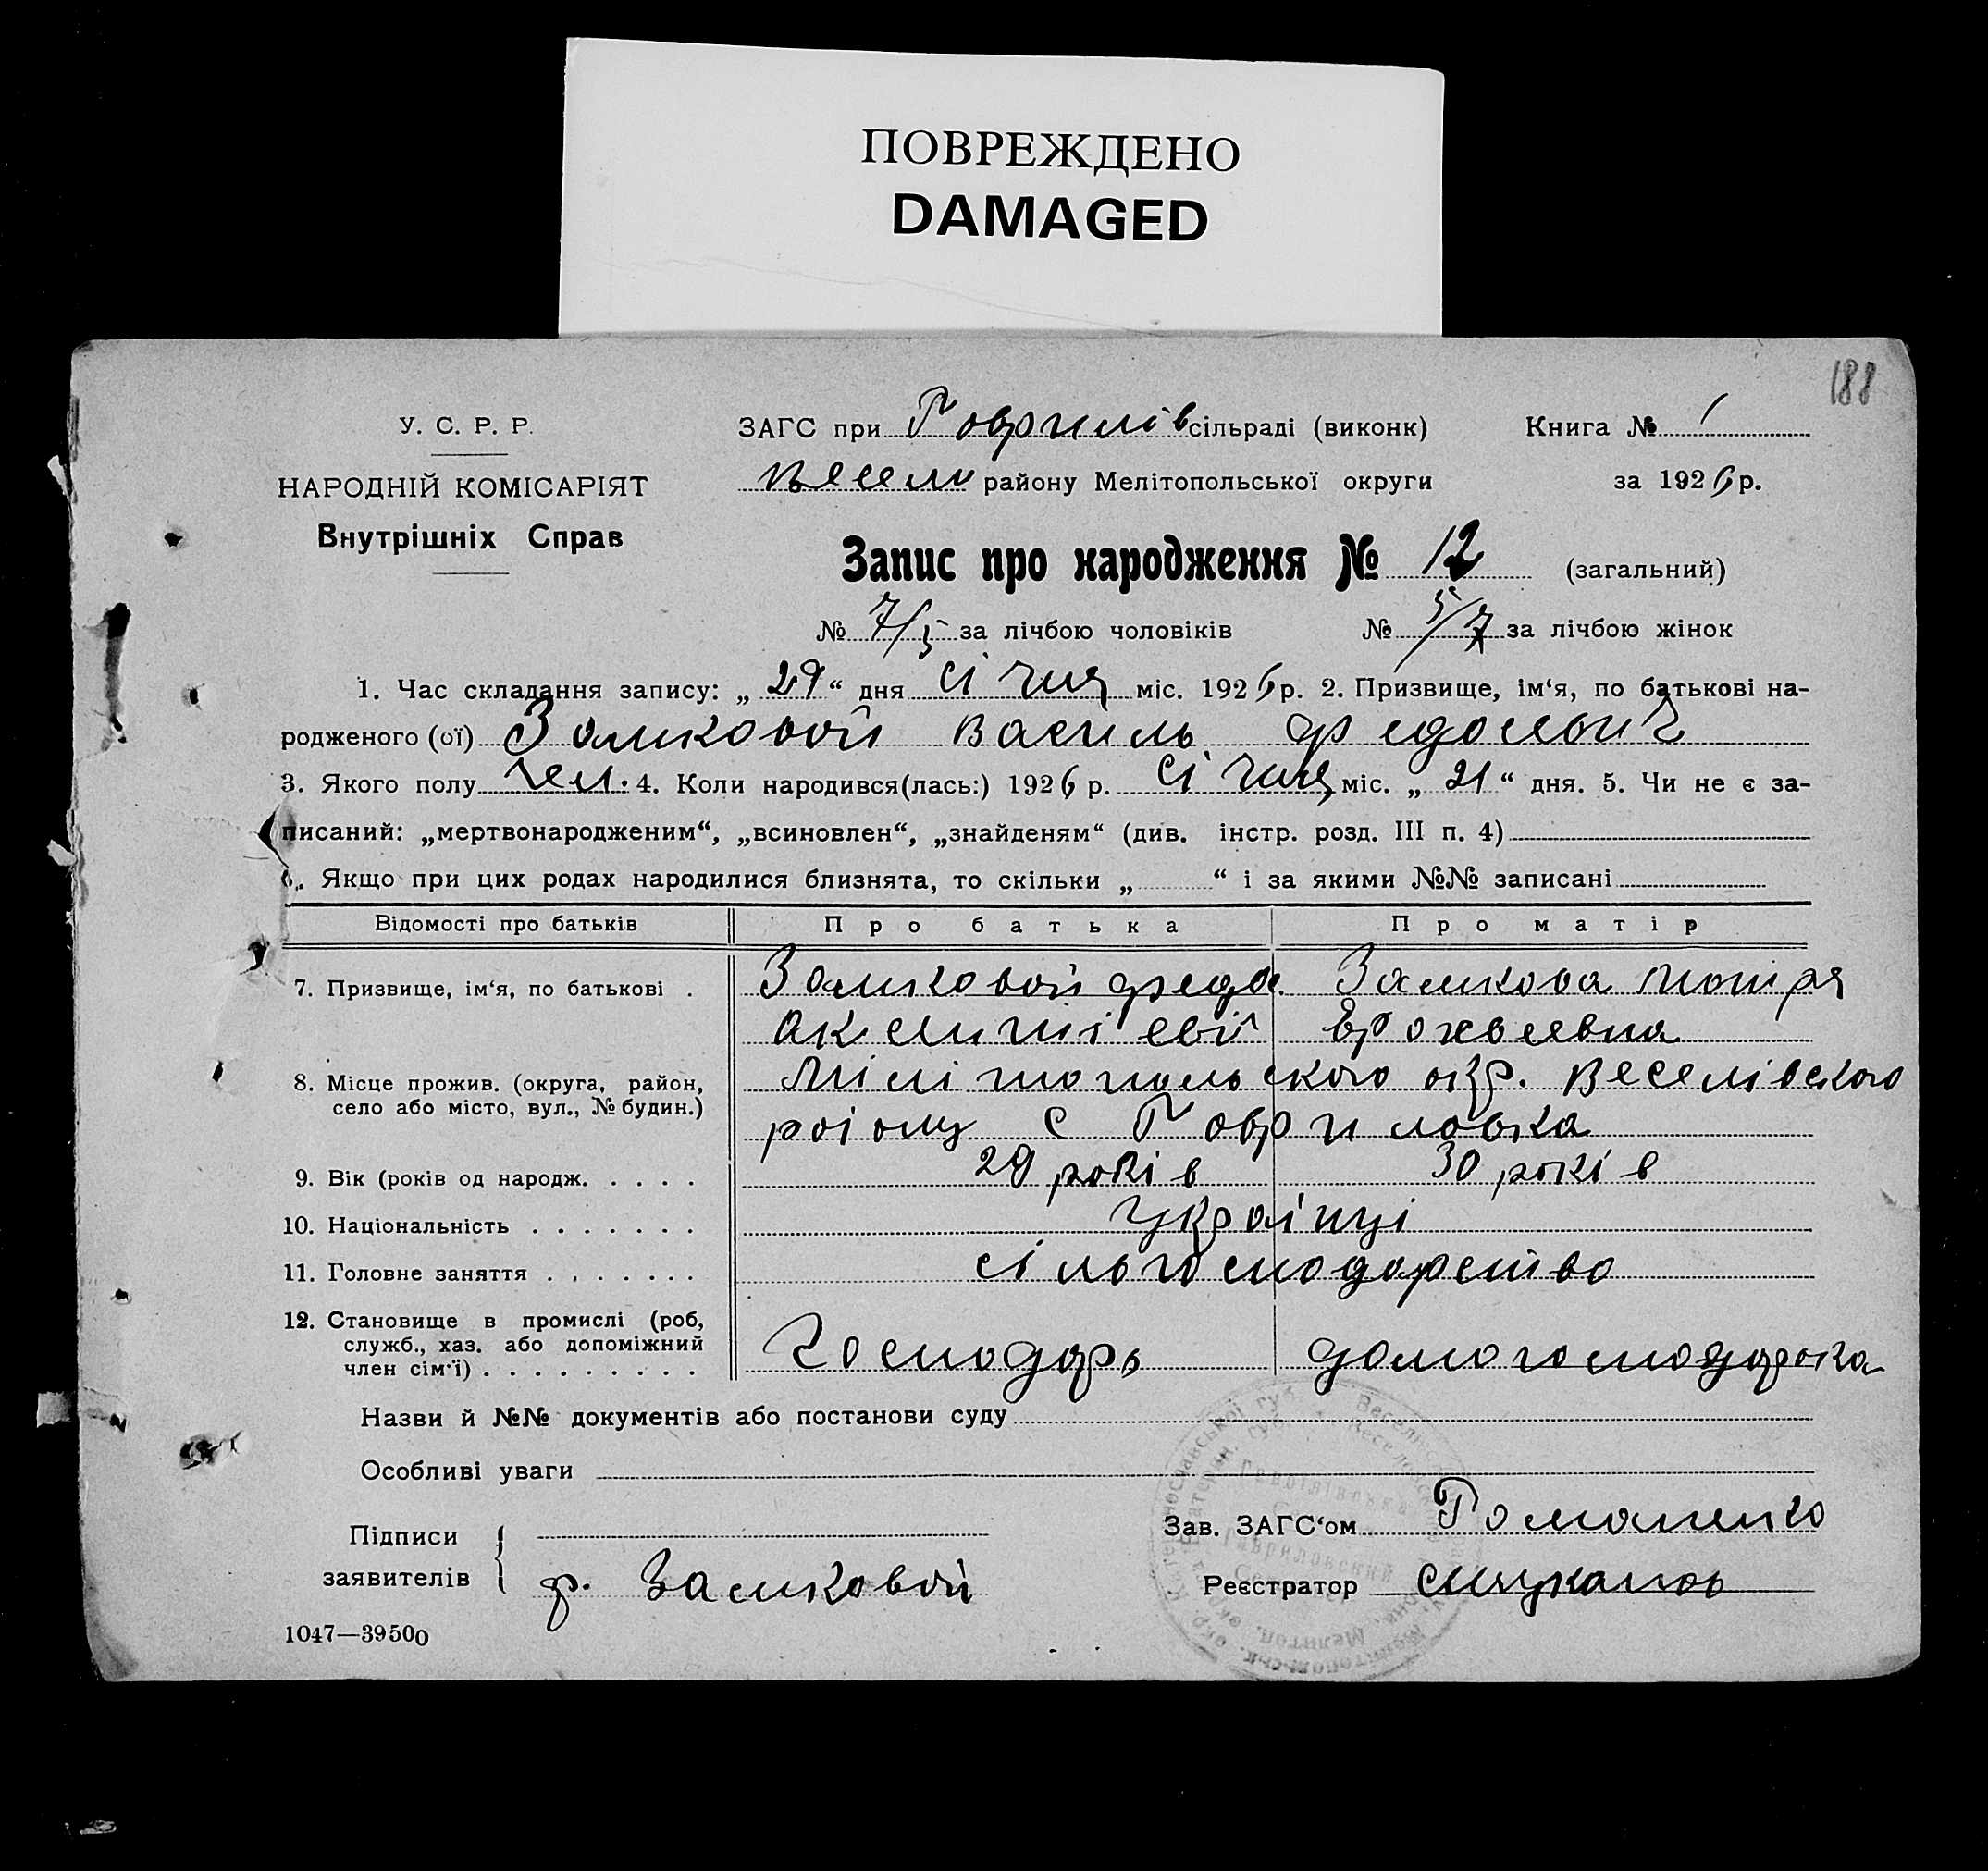 ПОВРЕЖДЕНО
DAMAGED
188
У. С. Р. Р.
НАРОДНІЙ КОМІСАРІЯТ
Внутрішніх Справ
ЗАГС при Гаврилів сільраді (виконк) Книга № 1
Весели району Мелітопольської округи за 1926 р.
Запис про народження № 12 (загальний)
№ 7/5 за лічбою чоловіків № 5/7 за лічбою жінок
1. Час складання запису: „29“ дня січня міс. 1926 р. 2. Призвище, ім‘я, по батькові на-
родженого (ої) Замковой Василь Федосевич
3. Якого полу чел. 4. Коли народився(лась:) 1926 р. січня міс. „21“ дня. 5. Чи не є за-
писаний: „мертвонародженим“, „всиновлен“, „знайденям“ (див. інстр. розд. III п. 4)
6. Якщо при цих родах народилися близнята, то скільки „ “ і за якими №№ записані
Відомості про батьків Про батька Про матір
7. Призвище, ім‘я, по батькові . Замковой Феда Замкова Мотря
Ерохвевна
8. Місце прожив. (округа, район, село або місто, вул., № будин.) Мілітопольского окр. Веселівского
раіону С Гавриловка
9. Вік (років од народж. . . . . 29 років 30 років
10. Національність . . . . . . . Украінці
11. Головне заняття . . . . . . . сільгосподарство
12. Становище в промислі (роб, служб., хаз. або допоміжний член сім‘ї) . . . . . . . . . Господарь домогосподарка
Назви й №№ документів або постанови суду
Особливі уваги
Підписи
заявителів
Ф. Замковой
Зав. ЗАГС‘ом Романенко
Реєстратор
1047—39500